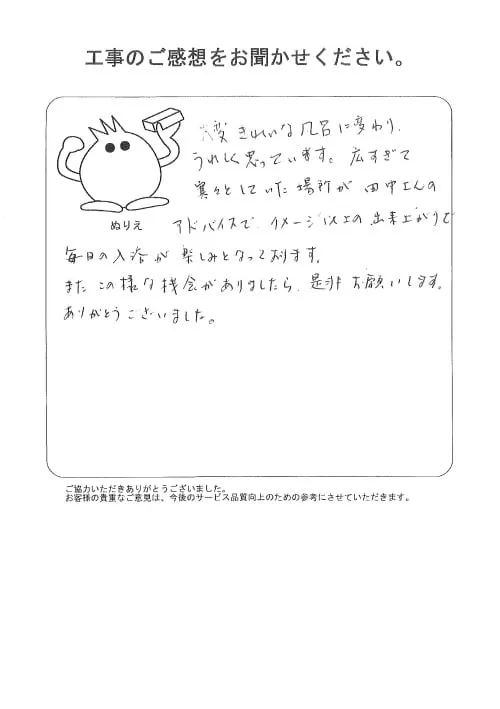 工事のご感想をお聞かせください。
大変 きれいな風呂に変わり、
うれしく思っています。広すぎて
寒々としていた場所が 田中さんの
ぬりえ
アドバイスで、イメージ以上の出来上がりで
毎日の入浴が 楽しみとなっております。
また この様な機会がありましたら、是非お願いします。
ありがとうございました。
ご協力いただきありがとうございました。
お客様の貴重なご意見は、今後のサービス品質向上のための参考にさせていただきます。